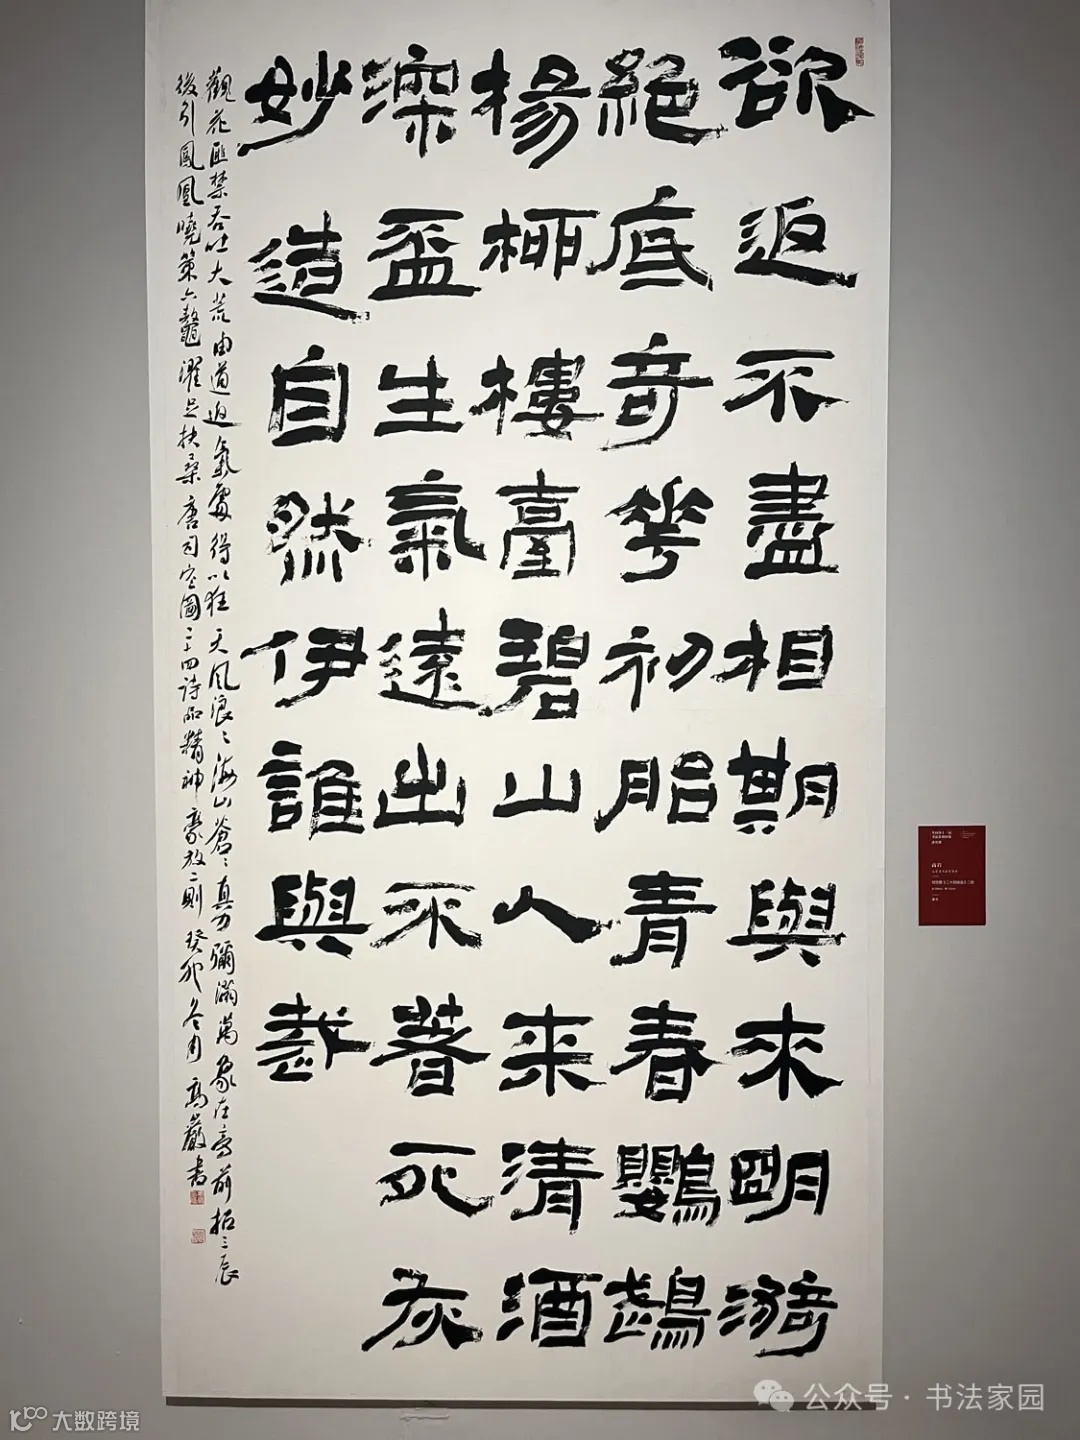 欲返不盡相期與來明漪
絕底奇花初胎青春鸚鵡
楊柳樓臺碧山人来清酒
深盃生氣遠出不著死灰
妙造自然伊誰與裁
觀花匪禁吞吐大荒由道返氣處得以狂天風浪〻海山蒼〻真力彌滿萬象在旁前招三辰
後引鳳凰曉策六鼇濯足扶桑唐司空圖二十四詩品精神豪放二則癸卯冬月高嚴書
公众号 · 书法家园
大数跨境